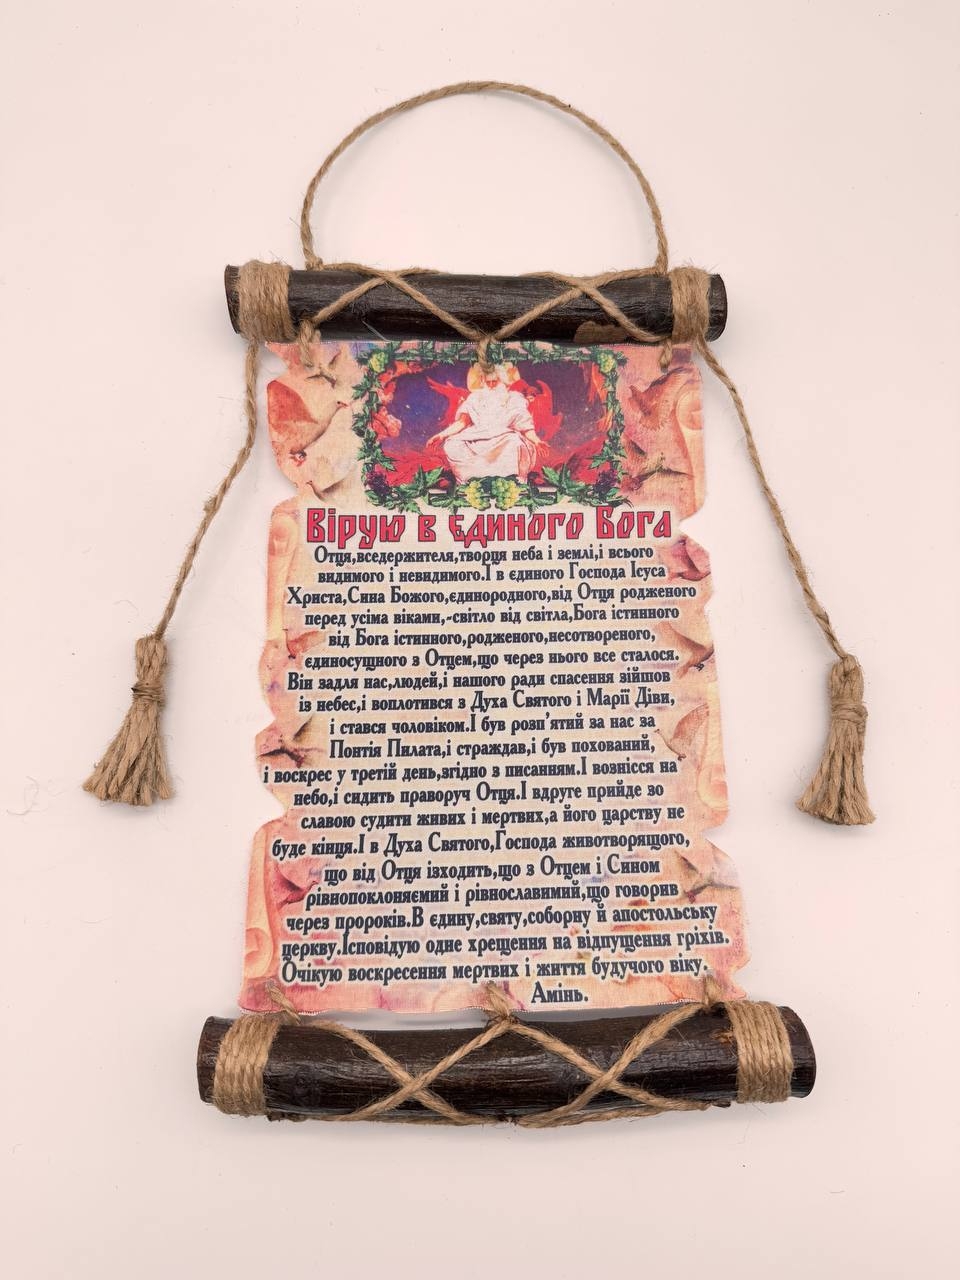 Вірую в єдиного Бога
Отця,вседержителя,творця неба і землі,і всього
видимого і невидимого.І в єдиного Господа Ісуса
Христа,Сина Божого,єдинородного,від Отця родженого
перед усіма віками,-світло від світла,Бога істинного
від Бога істинного,родженого,несотвореного,
єдиносущного з Отцем,що через нього все сталося.
Він задля нас,людей,і нашого ради спасення зійшов
із небес,і воплотився з Духа Святого і Марії Діви,
і стався чоловіком.І був розп'ятий за нас за
Понтія Пилата,і страждав,і був похований,
і воскрес у третій день,згідно з писанням.І вознісся на
небо,і сидить праворуч Отця.І вдруге прийде зо
славою судити живих і мертвих,а його царству не
буде кінця.І в Духа Святого,Господа животворящого,
що від Отця ізходить,що з Отцем і Сином
рівнопоклоняємий і рівнославимий,що говорив
через пророків.В єдину,святу,соборну й апостольську
церкву.Ісповідую одне хрещення на відпущення гріхів.
Очікую воскресення мертвих і життя будучого віку.
Амінь.